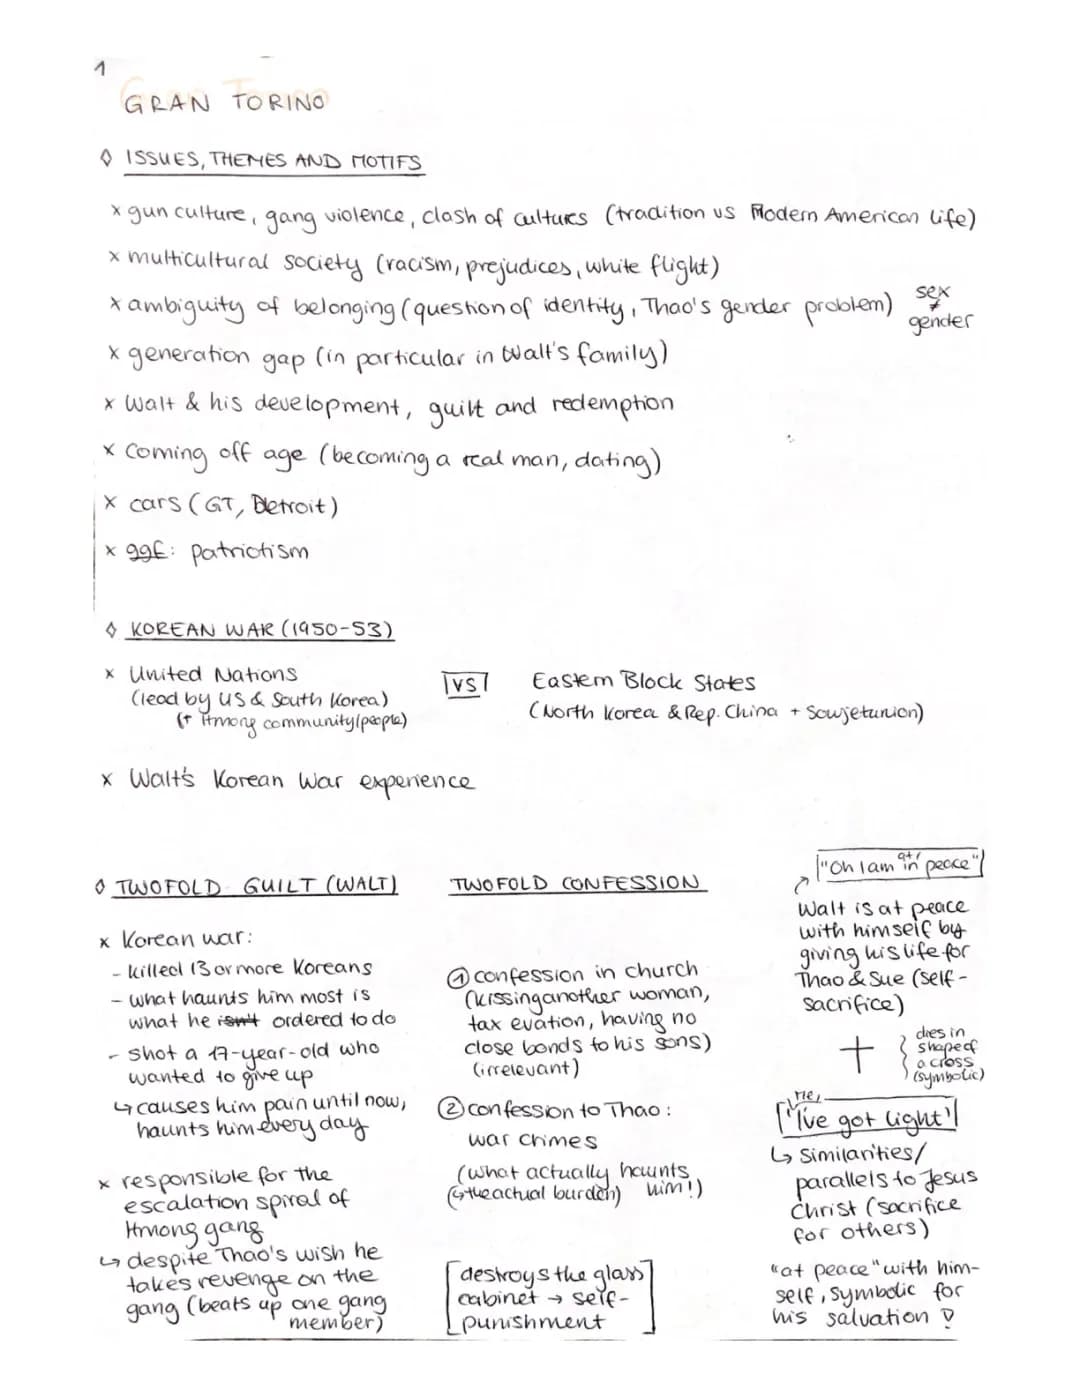 1
GRAN TORINO
◊ ISSUES, THEMES AND MOTIFS
x gun culture, gang violence, clash of cultures (tradition vs Modern American life)
x multicultural society (racism, prejudices, white flight)
x ambiguity of belonging (question of identity, Thao's gender problem) sex ≠ gender
x generation gap (in particular in Walt's family)
x Walt & his development, guilt and redemption
x Coming off age (becoming a real man, dating)
x cars (GT, Detroit)
x ggf: patriotism
◊ KOREAN WAR (1950-53)
x United Nations
(lead by US & South Korea)
(+ Hmong community/people)
VS
Eastern Block States
(North Korea & Rep. China + Sowjetunion)
x Walt's Korean War experience
◊ TWOFOLD GUILT (WALT)
x Korean war:
- killed 13 or more Koreans
- what haunts him most is
what he isn't ordered to do
- shot a 17-year-old who
wanted to give up
↳ causes him pain until now,
haunts him every day
x responsible for the
escalation spiral of
Hmong gang
↳ despite Thao's wish he
takes revenge on the
gang (beats up one gang
member)
TWOFOLD CONFESSION
① confession in church
(kissing another woman,
tax evation, having no
close bonds to his sons)
(irrelevant)
② confession to Thao:
war crimes
(what actually haunts
(↳ the actual burden) him!)
[destroys the glass
cabinet → self-
punishment]
"Oh I am at/in peace"
Walt is at peace
with himself by
giving his life for
Thao & Sue (self-
sacrifice)
dies in
shape of
a cross
(symbolic)
"Me, I've got light"
↳ Similarities/
parallels to Jesus
Christ (sacrifice
for others)
"at peace" with him-
self, symbolic for
his salvation